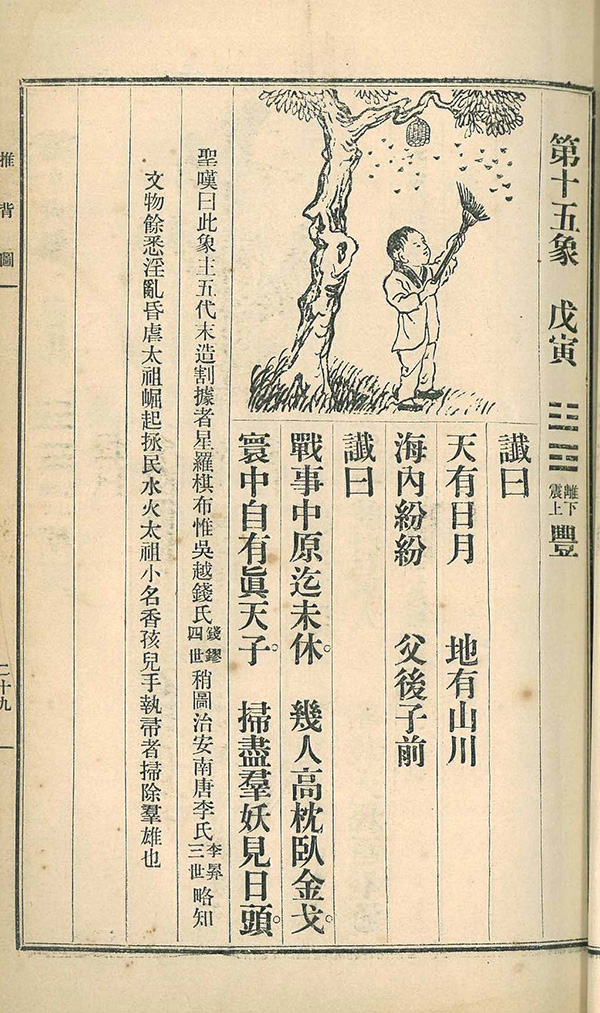 第十五象　戊寅　☲☳ 離下震上　豐
讖曰
天有日月　地有山川
海內紛紛　父後子前
讖曰
戰事中原迄未休。幾人高枕臥金戈。
寰中自有眞天子。掃盡羣妖見日頭。
聖嘆曰此象主五代末造割據者星羅棋布惟吳越錢氏錢鏐四世稍圖治安南唐李氏李昪三世略知
文物餘悉淫亂昏虐太祖崛起拯民水火太祖小名香孩兒手執帚者掃除羣雄也
推背圖
二十九